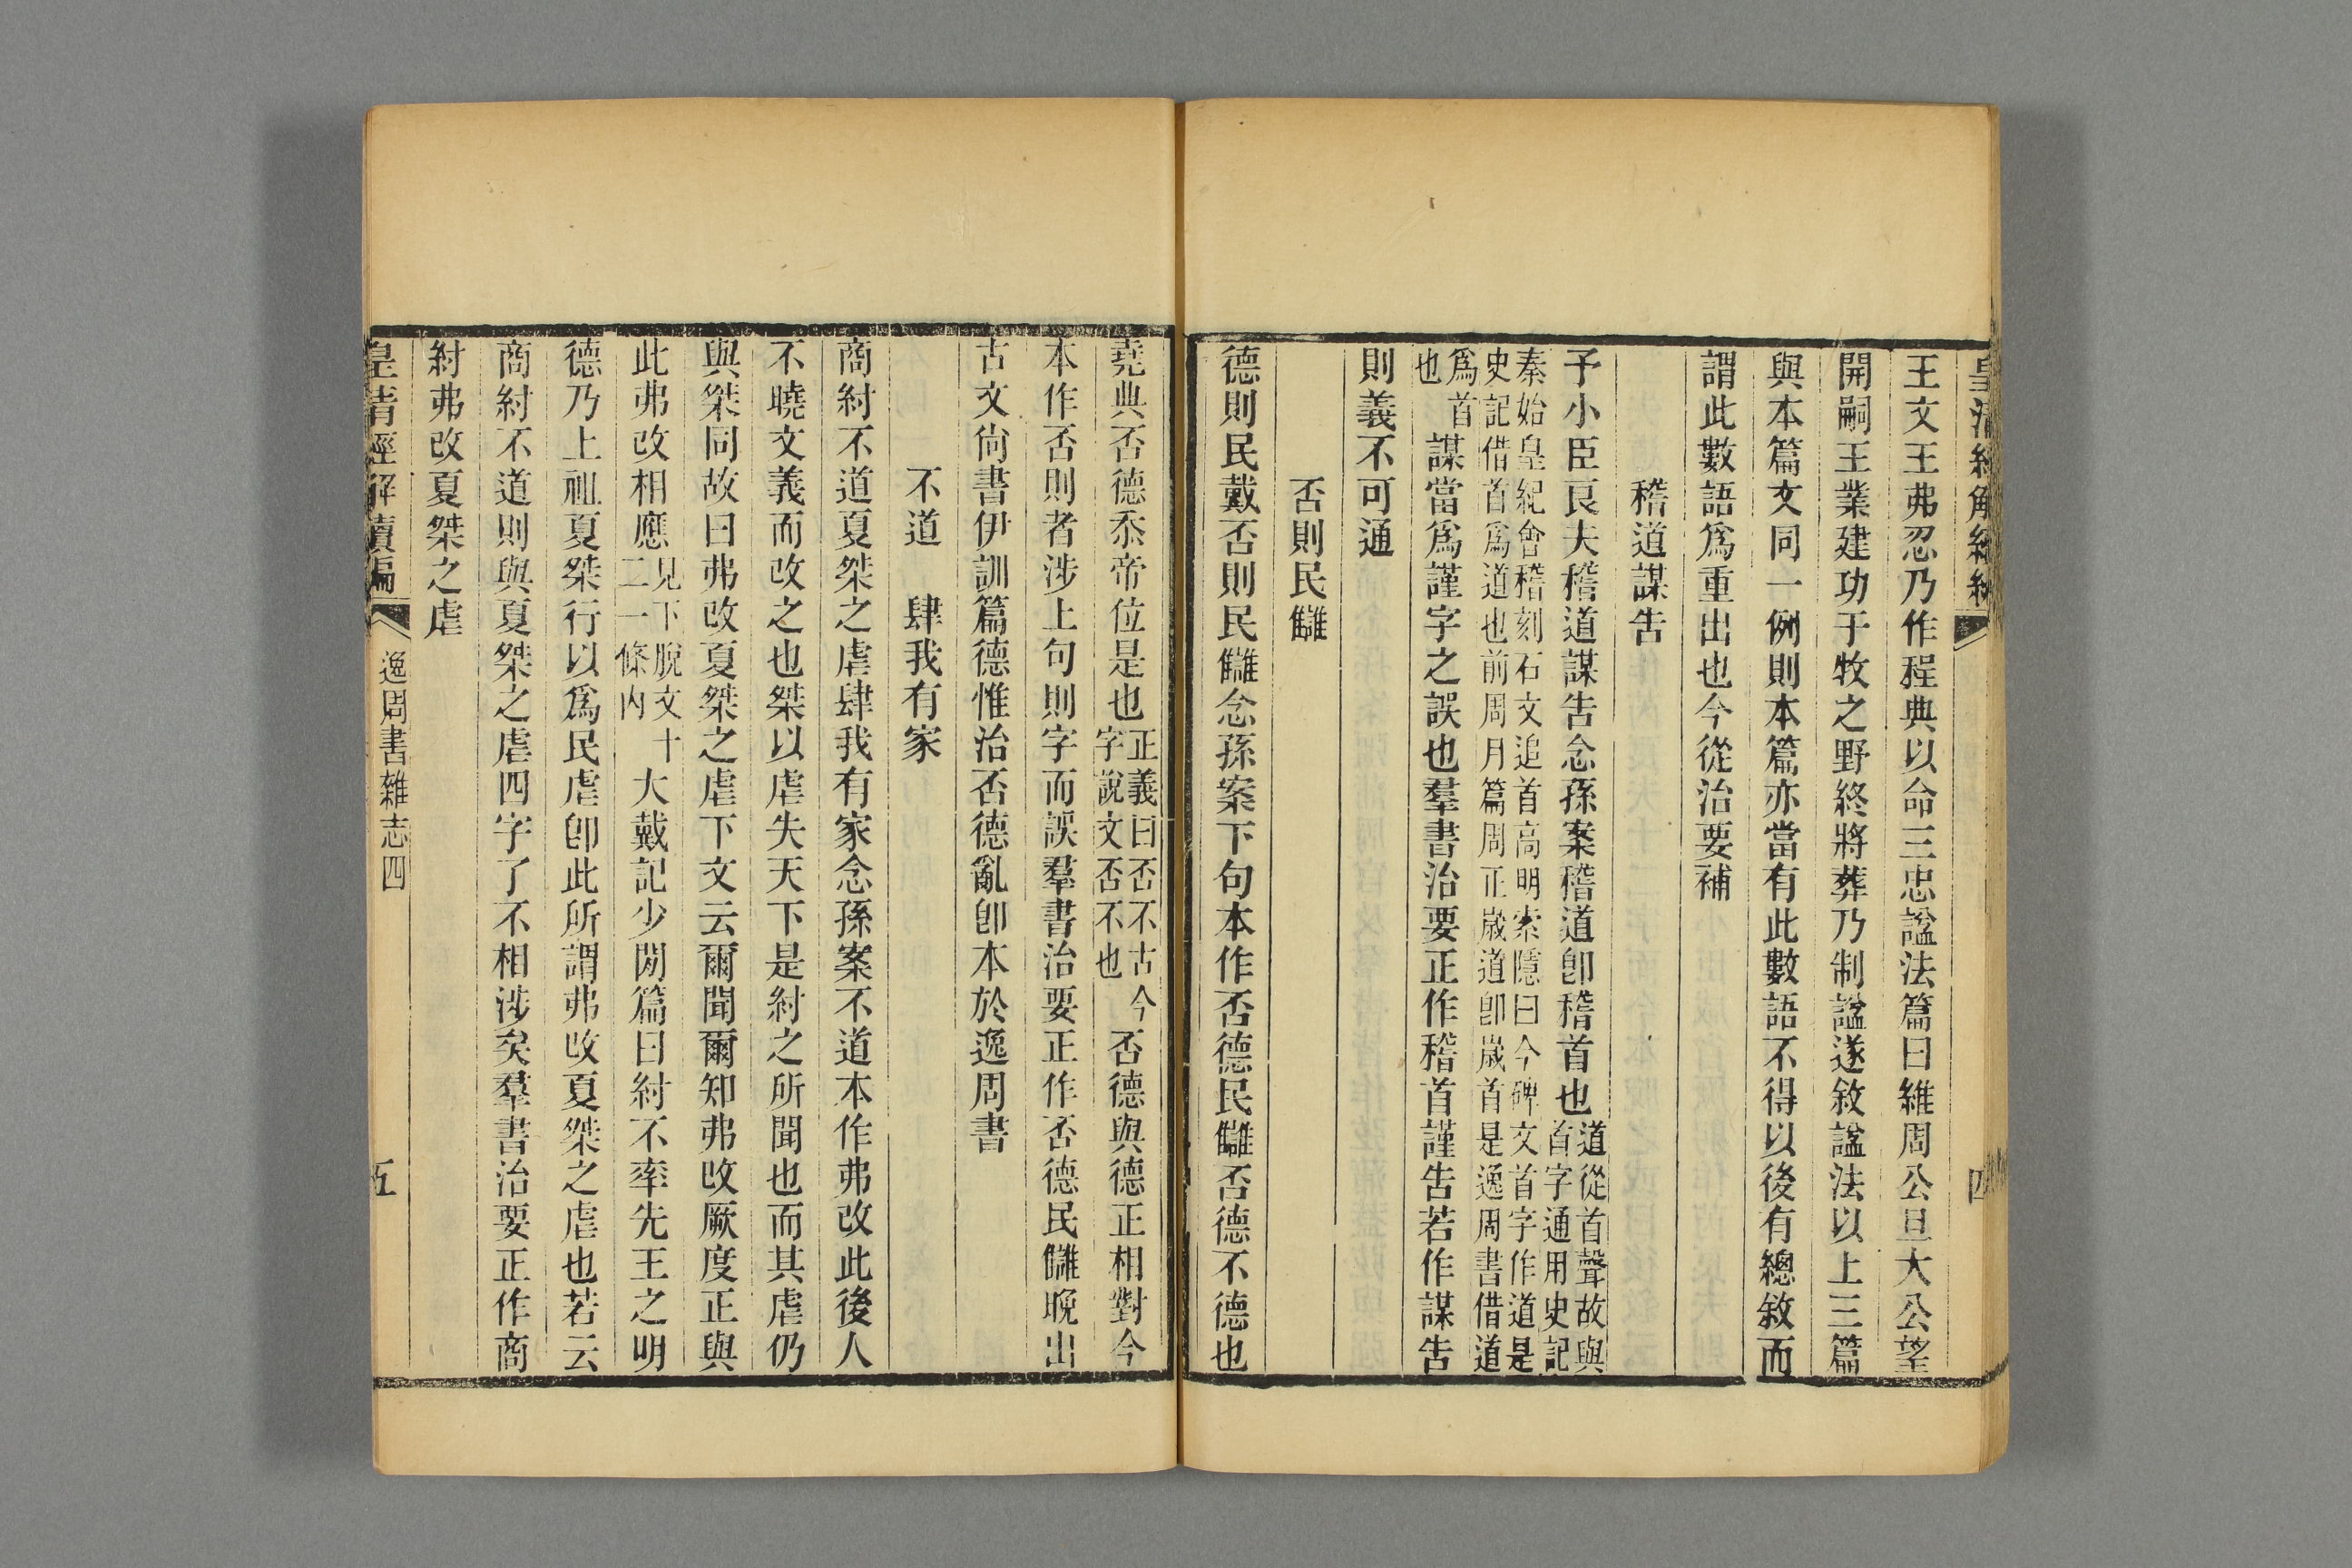 王文王弗忍乃作程典以命三忠謚法篇曰維周公旦大公望
開嗣王業建功于牧之野終將葬乃制謚遂敘謚法以上三篇
與本篇文同一例則本篇亦當有此數語不得以後有總敘而
謂此數語爲重出也今從治要補
稽道謀告
予小臣良夫稽道謀告念孫案稽道卽稽首也道從首聲故與
首字通用史記
秦始皇紀會稽刻石文追首高明索隱曰今碑文首字作道是
史記借首爲道也前周月篇周正歲道卽歲首是逸周書借道
爲首
也
謀當爲謹字之誤也羣書治要正作稽首謹告若作謀告
則義不可通
否則民讎
德則民戴否則民讎念孫案下句本作否德民讎否德不德也
堯典否德忝帝位是也正義曰否不古今
字說文否不也
否德與德正相對今
本作否則者涉上句則字而誤羣書治要正作否德民讎晚出
古文尙書伊訓篇德惟治否德亂卽本於逸周書
不道　肆我有家
商紂不道夏桀之虐肆我有家念孫案不道本作弗改此後人
不曉文義而改之也桀以虐失天下是紂之所聞也而其虐仍
與桀同故曰弗改夏桀之虐下文云爾聞爾知弗改厥度正與
此弗改相應見下脫文十
二一條內
大戴記少閒篇曰紂不率先王之明
德乃上祖夏桀行以爲民虐卽此所謂弗改夏桀之虐也若云
商紂不道則與夏桀之虐四字了不相涉矣羣書治要正作商
紂弗改夏桀之虐
皇清經解續編
逸周書雜志四
五